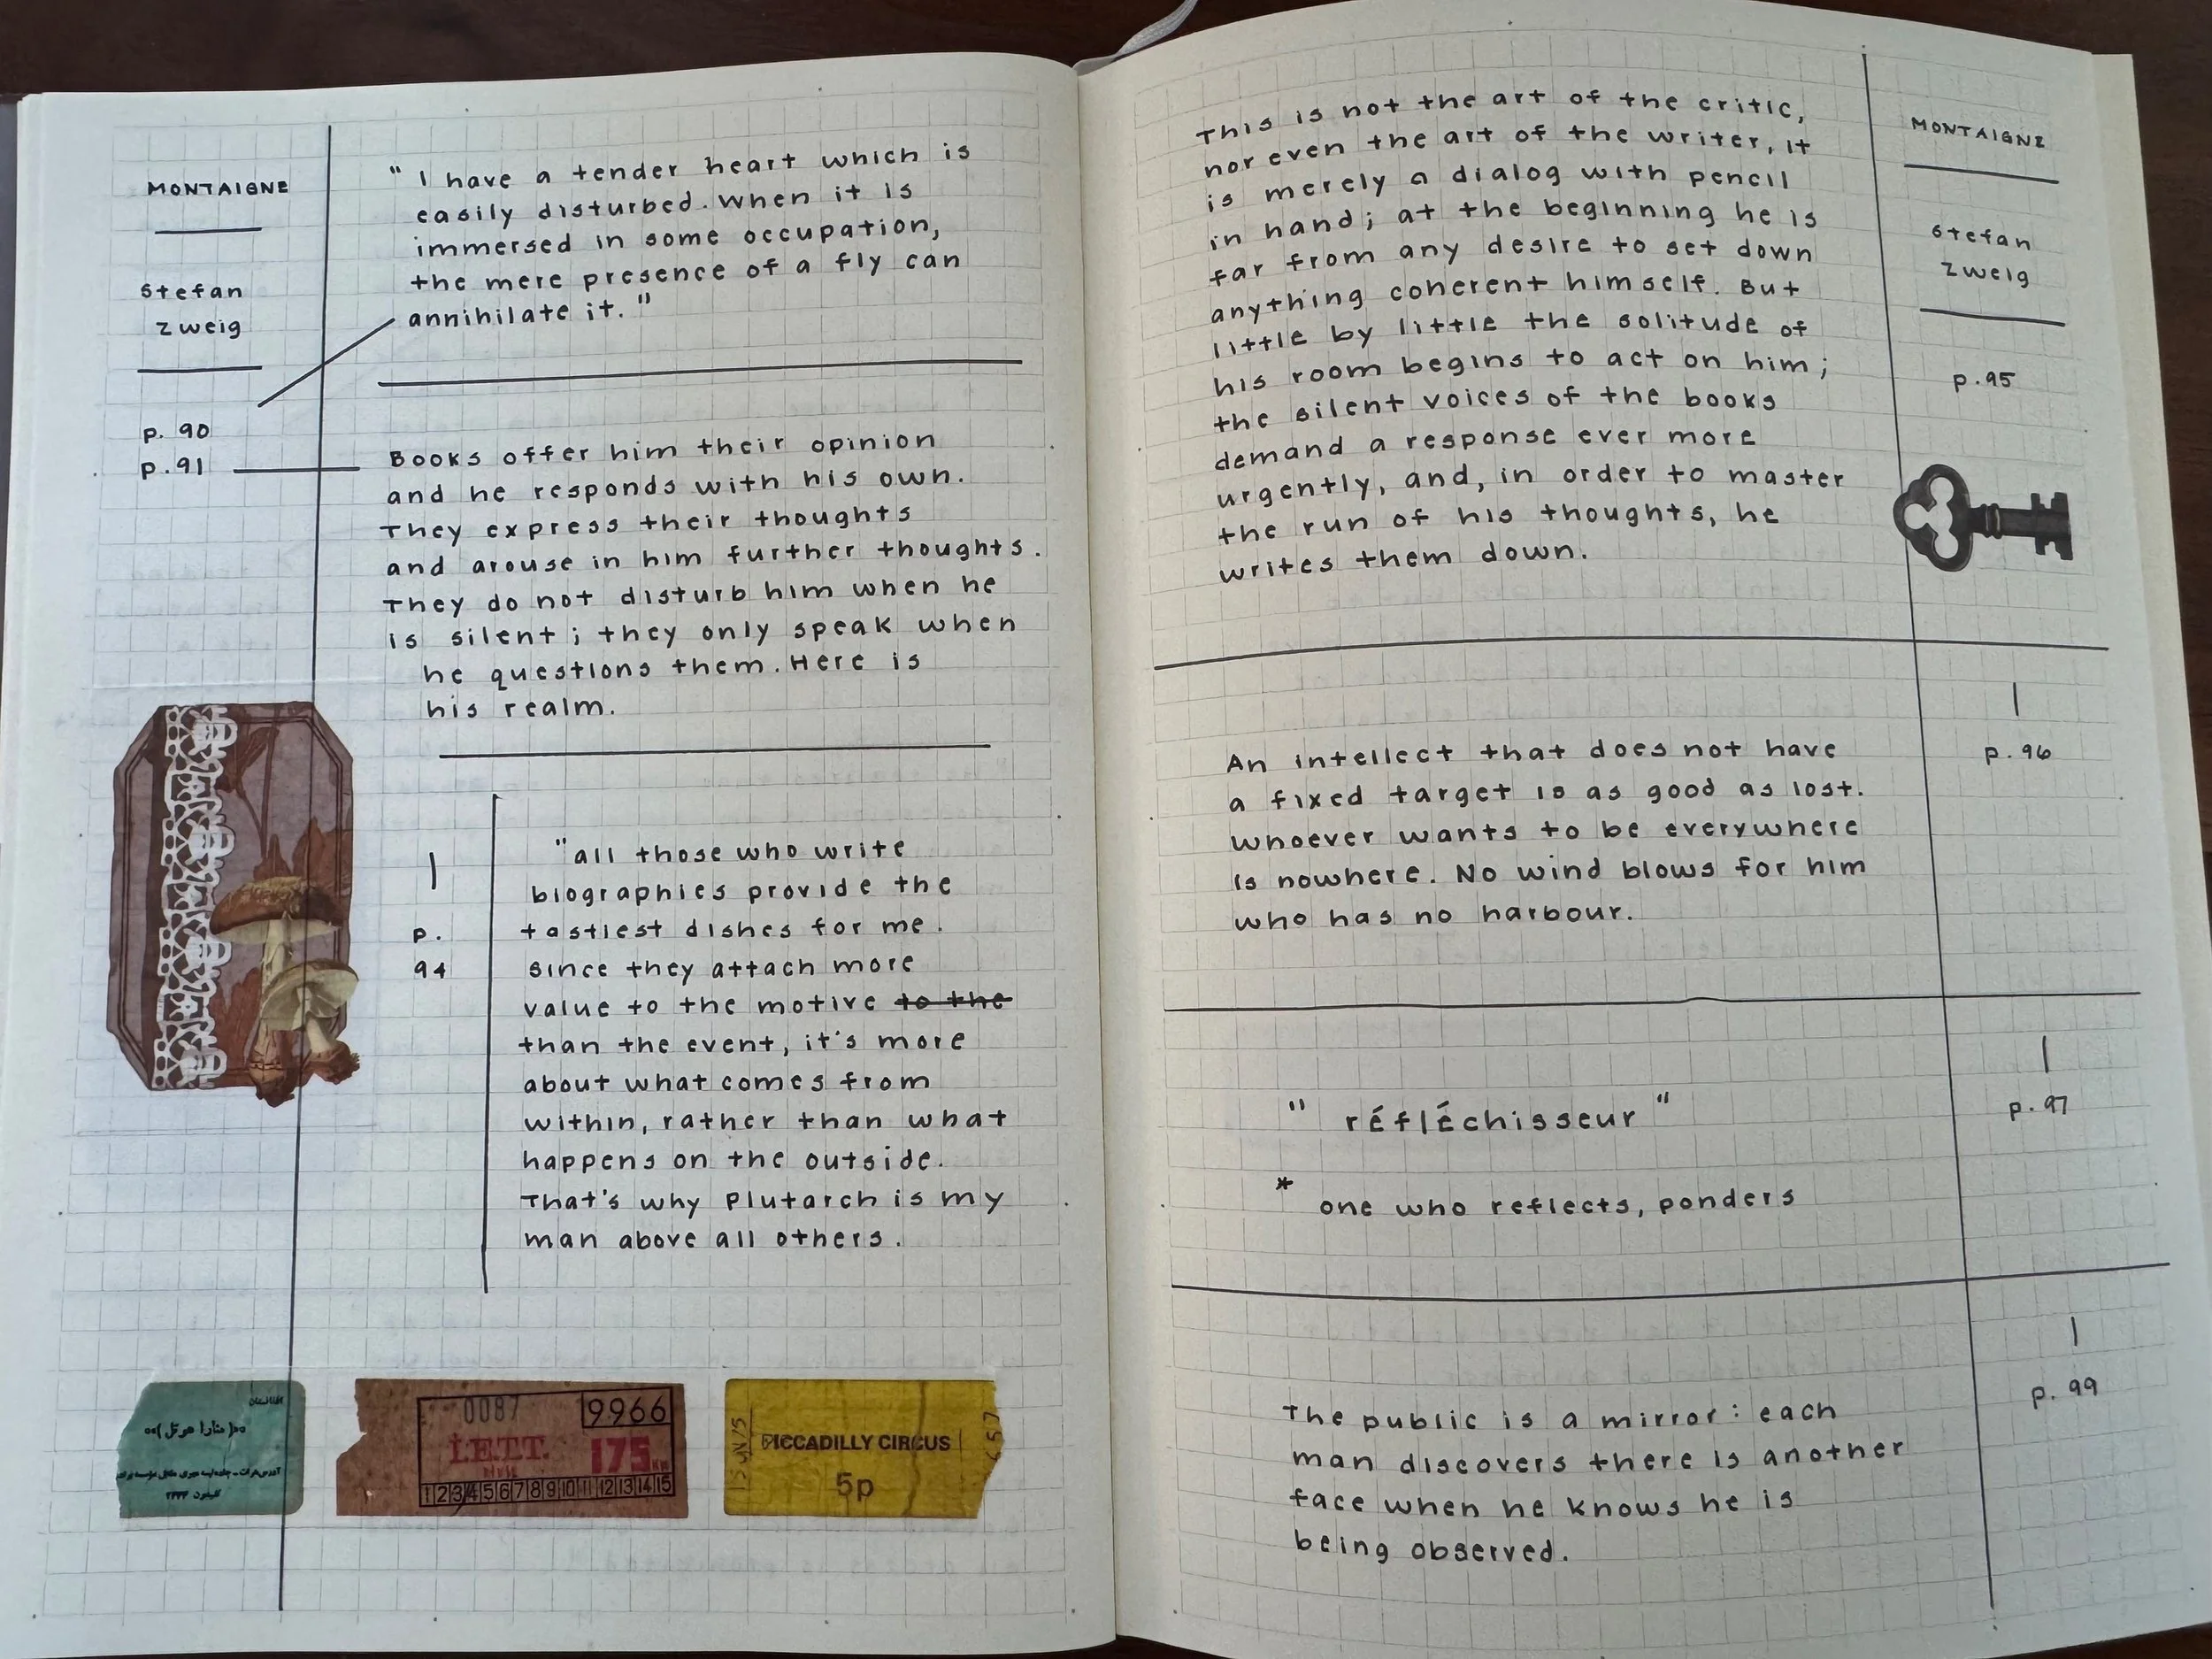 MONTAIGNE
Stefan
Zweig
p. 90
p. 91
" I have a tender heart which is
easily disturbed. When it is
immersed in some occupation,
the mere presence of a fly can
annihilate it. "
Books offer him their opinion
and he responds with his own.
They express their thoughts
and arouse in him further thoughts.
They do not disturb him when he
is silent; they only speak when
he questions them. Here is
his realm.
p.
94
"all those who write
biographies provide the
tastiest dishes for me.
since they attach more
value to the motive to the
than the event, it's more
about what comes from
within, rather than what
happens on the outside.
That's why Plutarch is my
man above all others.
افغانستان
0087
9966
I.E.T.T.
175
1 2 3 4 5 6 7 8 9 10 11 12 13 14 15
PICCADILLY CIRCUS
5p
This is not the art of the critic,
nor even the art of the writer, it
is merely a dialog with pencil
in hand; at the beginning he is
far from any desire to set down
anything coherent himself. But
little by little the solitude of
his room begins to act on him;
the silent voices of the books
demand a response ever more
urgently, and, in order to master
the run of his thoughts, he
writes them down.
MONTAIGNE
Stefan
Zweig
p. 95
An intellect that does not have
a fixed target is as good as lost.
Whoever wants to be everywhere
is nowhere. No wind blows for him
who has no harbour.
p. 96
" réfléchisseur "
* one who reflects, ponders
p. 97
The public is a mirror: each
man discovers there is another
face when he knows he is
being observed.
p. 99